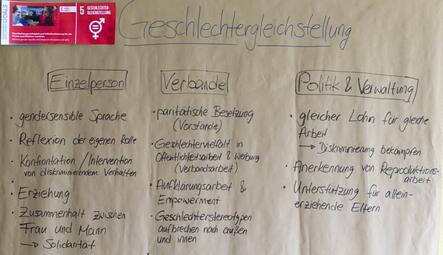 5 GESCHLECHTER-
GLEICHSTELLUNG
Geschlechtergleichstellung
Einzelperson
• gendersensible Sprache
• Reflexion der eigenen Rolle
• Konfrontation/Intervention
von diskriminierendem Verhalten
• Erziehung
• Zusammenhalt zwischen
Frau und Mann
→ Solidarität
Verbände
• paritätische Besetzung
(Vorstände)
• Geschlechtervielfalt in
Öffentlichkeitsarbeit & Werbung
(Verbandsarbeit)
• Aufklärungsarbeit &
Empowerment
• Geschlechterstereotypen
aufbrechen nach außen
und innen
Politik & Verwaltung
• gleicher Lohn für gleiche
Arbeit
→ Diskriminierung bekämpfen
• Anerkennung von Reproduktions-
arbeit
• Unterstützung für allein-
erziehende Eltern